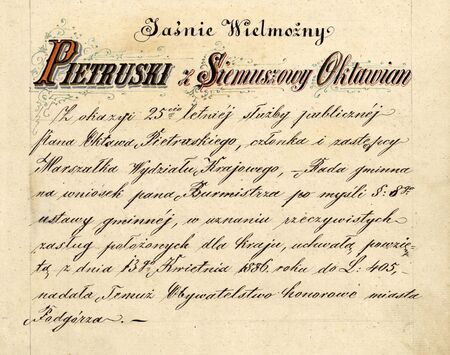 Jaśnie Wielmożny
Pietruski z Siemuszowy Oktawian
Z okazyi 25cio letniéj służby publicznéj
pana Oktawa Pietruskiego, członka i zastępcy
Marszałka Wydziału Krajowego, – Rada gminna
na wniosek pana Burmistrza po myśli §: 8go
ustawy gminnéj, w uznaniu rzeczywistych
zasług położonych dla kraju, uchwałą powzię-
tą z dnia 13go Kwietnia 1886. roku do L: 405,–
nadała Temuż Obywatelstwo honorowe miasta
Podgórza. –